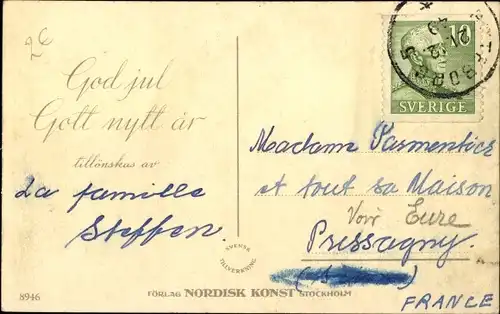 26
God jul
Gott nytt år
tillönskas av
La famille
Steffen.
10
SVERIGE
Madame Parmentier
et tout sa Maison
Voir Eure
Pressagny.
FRANCE
SVENSK
TILLVERKNING
8946
FÖRLAG NORDISK KONST STOCKHOLM